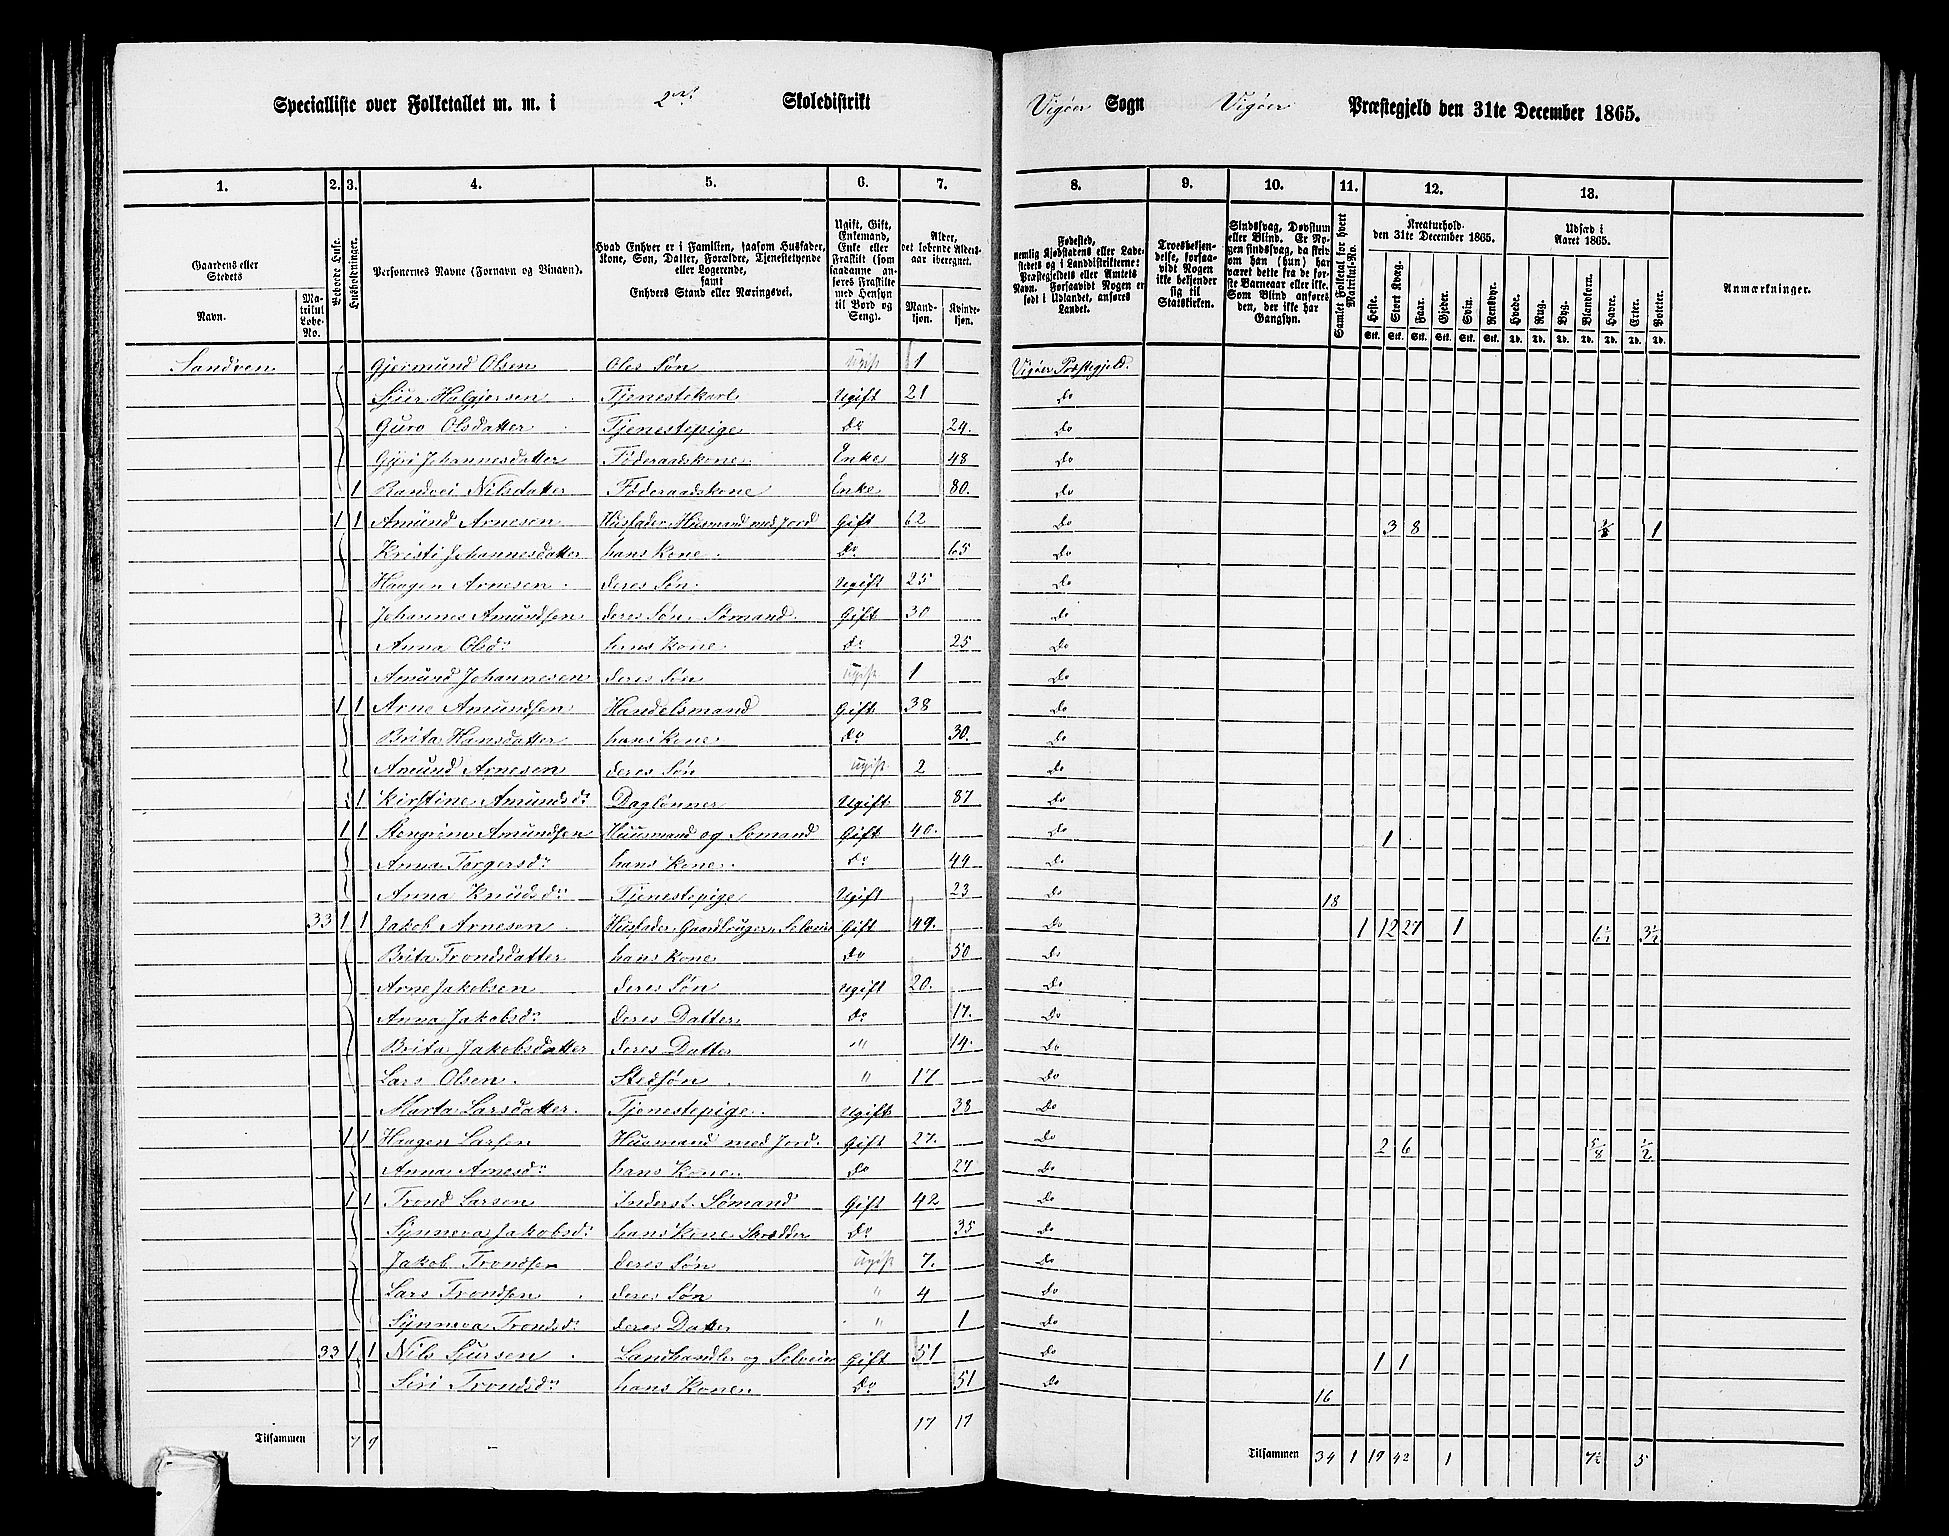 Specialliste over Folketallet m. m. i 2det Skoledistrikt Vigøer Sogn Vigøer Præstegjeld den 31te December 1865.
1. 2. 3. 4. 5. 6. 7. 8. 9. 10. 11. 12. 13.
Gaardens eller Stedets Navn. Matrikul Løbe-No. Beboede Huse. Husholdninger. Personernes Navne (Fornavn og Tilnavn). Hvad Enhver er i Familien, saasom Husfader, Kone, Søn, Datter, Forældre, Tjenestetyende eller Logerende, samt Enhvers Stand eller Næringsvei. Ugift, Gift, Enkemand, Enke eller Fraskilt (som saadanne anføres Fraskilte med Hensyn til Bord og Seng). Alder, det løbende Alders-aar iberegnet. Mandkjøn. Kvindekjøn.
Fødested, nemlig Kjøbstadens eller Ladestedets og i Landdistrikterne: Præstegjeldets eller Amtets Navn. Forsaavidt Nogen er født i Udlandet, anføres Landet. Troesbekjendelse, forsaavidt Nogen ikke bekjender sig til Statskirken. Sindssvag, Døvstum eller Blind. Er Nogen sindssvag, da hvis han (hun) har været dette fra de første Barneaar eller ikke. Som Blind anføres den, der ikke har Gangsyn. Samlet Folketal for hvert Matrikul-No. Kreaturhold den 31te December 1865. Heste. Stort Kvæg. Faar. Gjeder. Svin. Rensdyr. Udsæd i Aaret 1865. Hvede. Rug. Byg. Blandkorn. Havre. Erter. Poteter. Anmærkninger.
Stk. Stk. Stk. Stk. Stk. Stk. Td. Td. Td. Td. Td. Td. Td.
Sandven Gjermund Olsen Oles Søn Ugift 1 Vigøer Præstegjeld.
Sjur Halgjersen Tjenestekarl Ugift 21 Do
Guro Olsdatter Tjenestepige Do 24. Do
Gyri Johannesdatter Føderaadskone Enke 48 Do
1 Randvei Nilsdatter Føderaadskone Enke 80. Do
1 1 Amund Arnesen Husfader Husmand med Jord Gift 62 Do 3 8 1
Kristi Johannesdatter hans Kone Do 65 Do
Haagen Arnesen deres Søn Ugift 25 Do
Johannes Amundsen deres Søn Sømand Gift 30 Do
Anna Olsd. hans Kone Do 25 Do
Amund Johannesen deres Søn Ugift 1 Do
1 1 Arne Amundsen Handelsmand Gift 38 Do
Brita Hansdatter hans Kone Do 30. Do
Amund Arnesen deres Søn Ugift 2 Do
1 Kirstine Amundsd. Daglønner Ugift 87 Do
1 1 Stengrim Amundsen Huusmand og Sømand Gift 40. Do 1
Anna Torgersd. hans Kone Do 49 Do
Anna Knudsd. Tjenestepige Ugift 23 Do 18
33 1 1 Jakob Arnesen Husfader Gaardbruger Selveier Gift 49. Do 1 12 27 1 6½ 3½
Brita Trondsdatter hans Kone Do 50 Do
Arne Jakobsen deres Søn Ugift 20. Do
Anna Jakobsd. deres Datter Do 17. Do
Brita Jakobsdatter deres Datter " 14. Do
Lars Olsen Stedsøn " 17 Do
Marta Larsdatter Tjenestepige Ugift 38 Do
1 1 Haagen Larsen Husmand med Jord Gift 27. Do 2 6 5/8 1/2
Anna Arnesd. hans Kone Do 27 Do
1 1 Trond Larsen Inderst Sømand Gift 42 Do
Synneva Jakobsd. hans Kone Skrædder Do 35 Do
Jakob Trondsen deres Søn Ugift 7. Do
Lars Trondsen deres Søn " 4 Do
Synneva Trondsd. deres Datter " 1 Do
33 1 1 Nils Sjursen Landhandler og Selveier Gift 51 Do 1 1
Siri Trondsd. hans Kone Do 51 Do 16
17 17
Tilsammen 7 9 Tilsammen 34 1 19 42 1 7½ 5